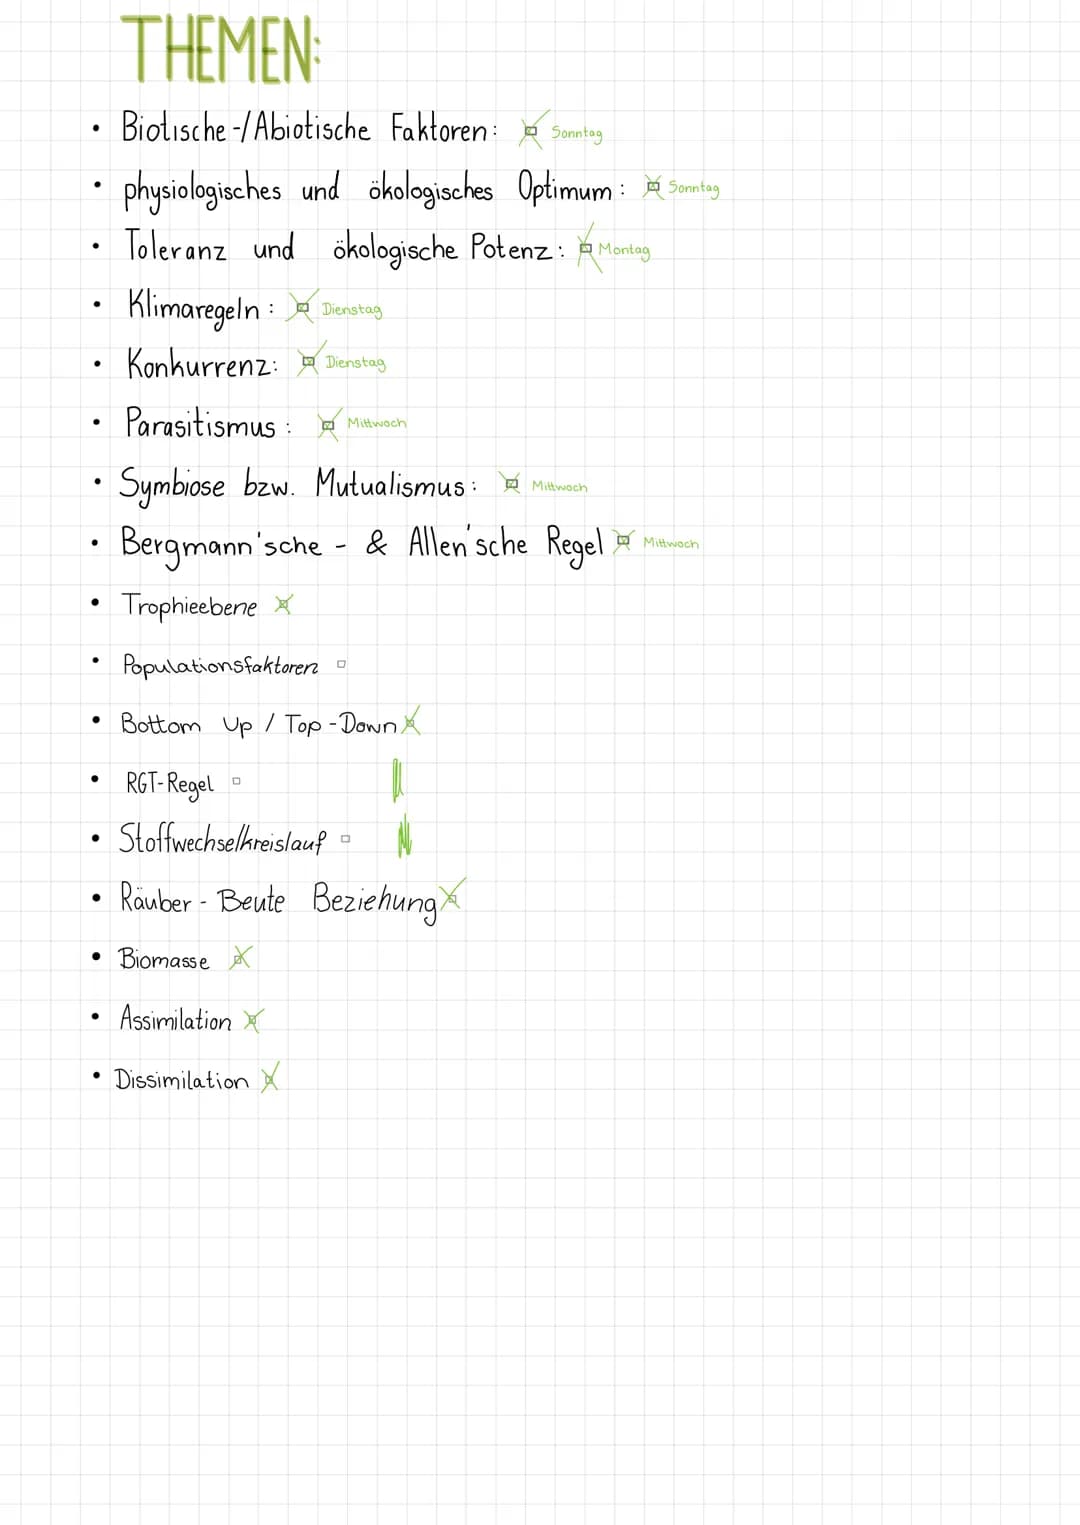 THEMEN:
• Biotische-/Abiotische Faktoren: Sonntag
• physiologisches und ökologisches Optimum: Sonntag
• Toleranz und ökologische Potenz: Montag
• Klimaregeln: Dienstag
• Konkurrenz: Dienstag
• Parasitismus: Mittwoch
• Symbiose bzw. Mutualismus: Mittwoch
• Bergmann'sche - & Allen'sche Regel Mittwoch
• Trophieebene
• Populationsfaktoren
• Bottom Up / Top-Down
• RGT-Regel
• Stoffwechselkreislauf
• Räuber - Beute Beziehung
• Biomasse
• Assimilation
• Dissimilation